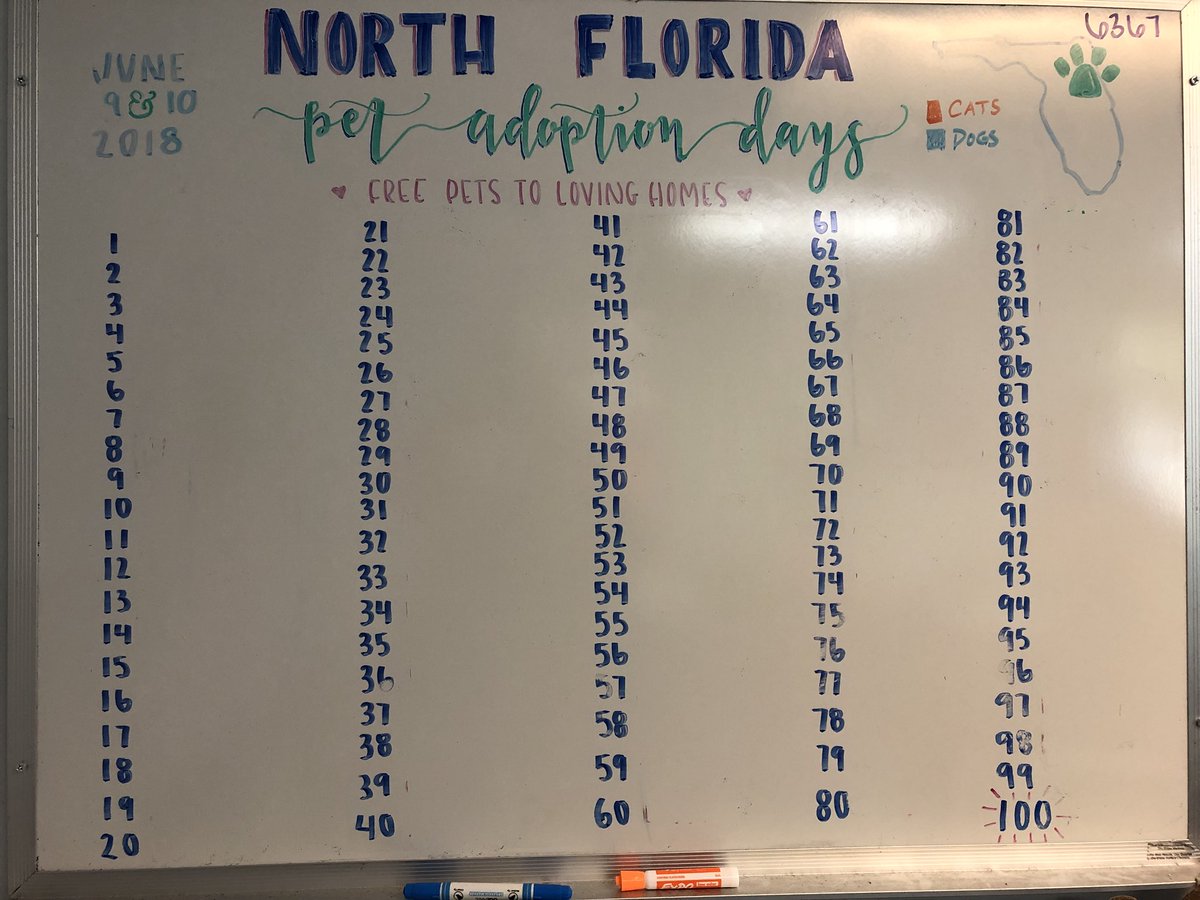 6367
NORTH FLORIDA
JUNE
9 & 10
2018
pet adoption days
CATS
DOGS
♥ FREE PETS TO LOVING HOMES ♥
1
2
3
4
5
6
7
8
9
10
11
12
13
14
15
16
17
18
19
20
21
22
23
24
25
26
27
28
29
30
31
32
33
34
35
36
37
38
39
40
41
42
43
44
45
46
47
48
49
50
51
52
53
54
55
56
57
58
59
60
61
62
63
64
65
66
67
68
69
70
71
72
73
74
75
76
77
78
79
80
81
82
83
84
85
86
87
88
89
90
91
92
93
94
95
96
97
98
99
100
EXPO